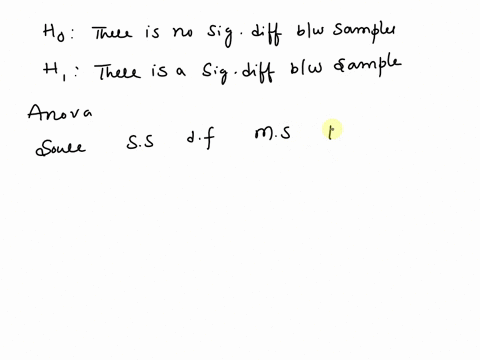 H0: There is no sig. diff b/w samples
H1: There is a sig. diff b/w sample
Anova
S.S d.f M.S